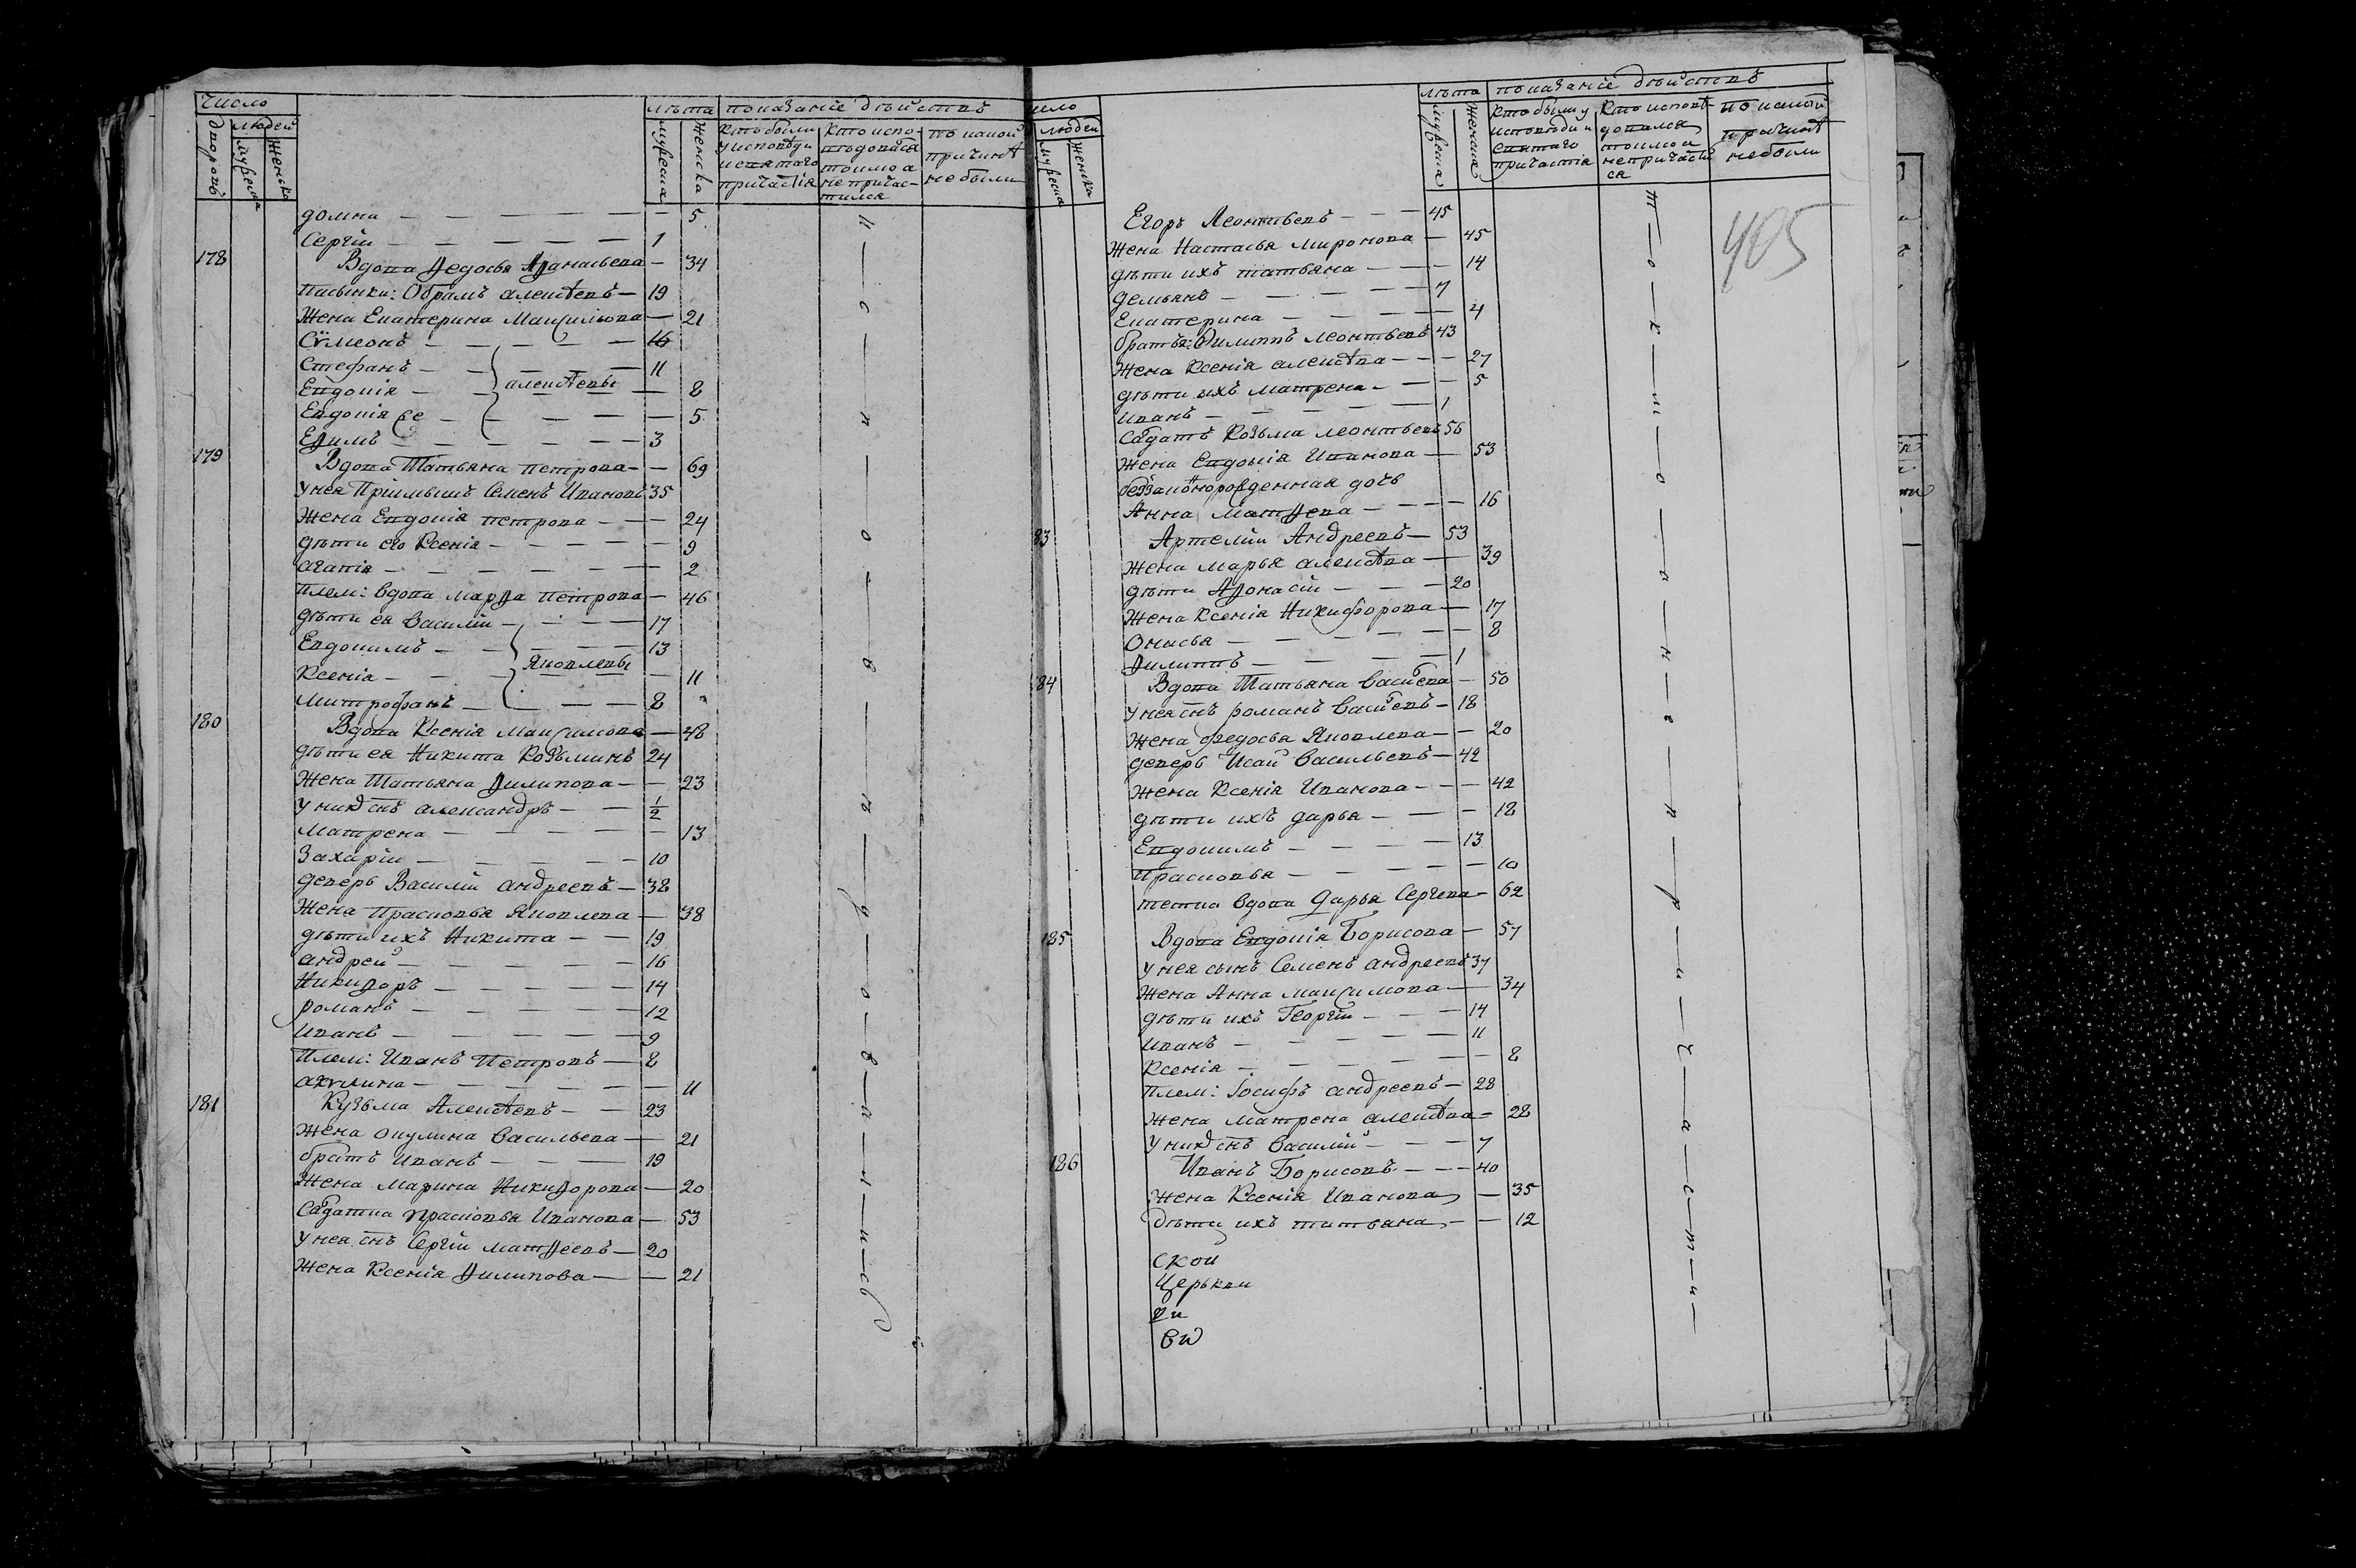 число
людей
дворовъ
мужеска
женска
лѣта
показанїе дѣйствъ
мужеска
женска
кто были у исповѣди и святаго причастїя
кто исповѣдовался токмо а не причастился
по какой причинѣ не были
домна — 5
Сергїй — 1
178 Вдова Ѳедосья Аѳанасьева — 34
пасынки: Обрамъ алексѣевъ — 19
Жена Екатерина Максимова — 21
Сѵмеонъ — 16
Стефанъ — 11
Евдокїя — алексѣевы — 8
Евдокїя же — 5
Еѳимъ — 3
179 Вдова Татьяна петрова — 69
у нея Прїимышъ Семенъ Ивановъ 35
жена Евдокїя петрова — 24
дѣти его Ксенїя — 9
агапїя — 2
плем: вдова марѳа петрова — 46
дѣти ея Василїй — 17
Евдокимъ — 13
Яковлевы
Ксенїя — 11
митрофанъ — 8
180 Вдова Ксенїя Максимова — 48
дѣти ея Никита Козьминъ 24
Жена Татьяна Ѳилипова — 23
у нихъ снъ александръ — 1/2
матрена — 13
Захарїй — 10
деверь Василїй андреевъ — 38
Жена Прасковья Яковлева — 38
дѣти ихъ Никита — 19
андрей — 16
Никиѳоръ — 14
романъ — 12
иванъ — 9
плем: Иванъ Петровъ — 8
акулина — 11
181 Кузьма Алексѣевъ — 23
жена окулина васильева — 21
братъ иванъ — 19
Жена Марина Никиѳорова — 20
Салдатка прасковья Иванова — 53
у нея снъ Сергїй матѳеевъ — 20
Жена Ксенїя Ѳилипова — 21
число
людей
мужеска
женска
лѣта
показанїе дѣйствъ
мужеска
женска
кто были у исповѣди и святаго причастїя
кто исповѣдовался токмо а не причастился
по какой причинѣ не были
405
Егоръ Леонтьевъ — 45
Жена Настасья миронова — 45
дѣти ихъ татьяна — 14
демьянъ — 7
Екатерина — 4
братья: Филиппъ леонтьевъ 43
Жена Ксенїя алексѣва — 27
дѣти ихъ матрена — 5
иванъ — 1
салдатъ Козьма леонтьевъ 56
жена Евдокїя Иванова — 53
беззаконорожденная дочь
Анна матѳева — 16
83 Артемїй Андреевъ — 53
жена марья алексѣва — 39
дѣти Аѳонасїй — 20
жена Ксенїя Никифорова — 17
онисья — 8
Ѳилиппъ — 1
84 Вдова Татьяна Васильева — 50
у нея снъ романъ Васильевъ — 18
жена федосья Яковлева — 20
деверь Исай Васильевъ — 42
жена Ксенїя Иванова — 42
дѣти ихъ дарья — 18
Евдокимъ — 13
Прасковья — 10
тетка вдова Дарья Сергева — 62
185 Вдова Евдокїя Борисова — 57
у нея сынъ Семенъ андреевъ 37
жена Анна максимова — 34
дѣти ихъ Георгїй — 14
иванъ — 11
Ксенїя — 8
плем: Іосифъ андреевъ — 28
жена матрена алексѣва — 28
у нихъ снъ василїй — 7
186 Иванъ Борисовъ — 40
жена Ксенїя Иванова — 35
дѣти ихъ татьяна — 12
ской
Церькви